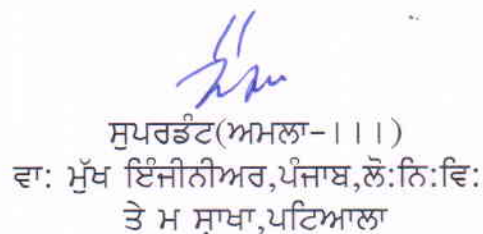 ਸੁਪਰਡੰਟ(ਅਮਲਾ-।।।)
ਵਾ: ਮੁੱਖ ਇੰਜੀਨੀਅਰ,ਪੰਜਾਬ,ਲੋ:ਨਿ:ਵਿ:
ਤੇ ਮ ਸ਼ਾਖਾ,ਪਟਿਆਲਾ